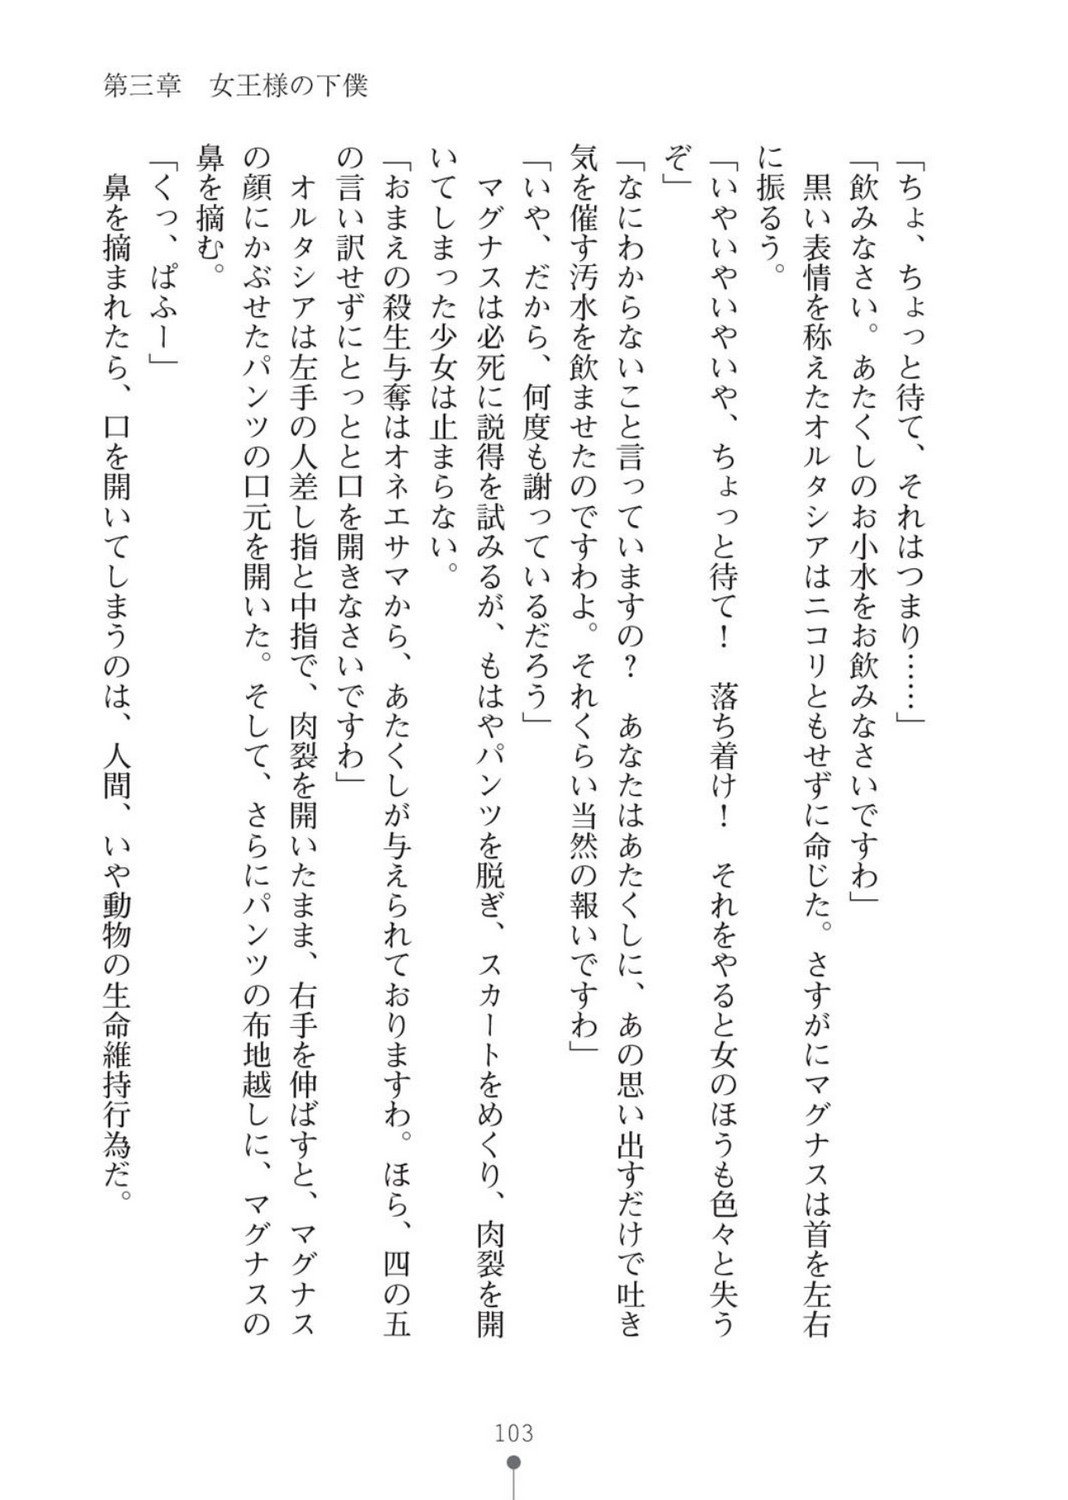 第三章　女王様の下僕
「ちょ、ちょっと待て、それはつまり……」
「飲みなさい。あたくしのお小水をお飲みなさいですわ」
　黒い表情を称えたオルタシアはニコリともせずに命じた。さすがにマグナスは首を左右
に振るう。
「いやいやいやいや、ちょっと待て！　落ち着け！　それをやると女のほうも色々と失う
ぞ」
「なにわからないこと言っていますの？　あなたはあたくしに、あの思い出すだけで吐き
気を催す汚水を飲ませたのですわよ。それくらい当然の報いですわ」
「いや、だから、何度も謝っているだろう」
　マグナスは必死に説得を試みるが、もはやパンツを脱ぎ、スカートをめくり、肉裂を開
いてしまった少女は止まらない。
「おまえの殺生与奪はオネエサマから、あたくしが与えられておりますわ。ほら、四の五
の言い訳せずにとっとと口を開きなさいですわ」
　オルタシアは左手の人差し指と中指で、肉裂を開いたまま、右手を伸ばすと、マグナス
の顔にかぶせたパンツの口元を開いた。そして、さらにパンツの布地越しに、マグナスの
鼻を摘む。
「くっ、ぱふー」
　鼻を摘まれたら、口を開いてしまうのは、人間、いや動物の生命維持行為だ。
103